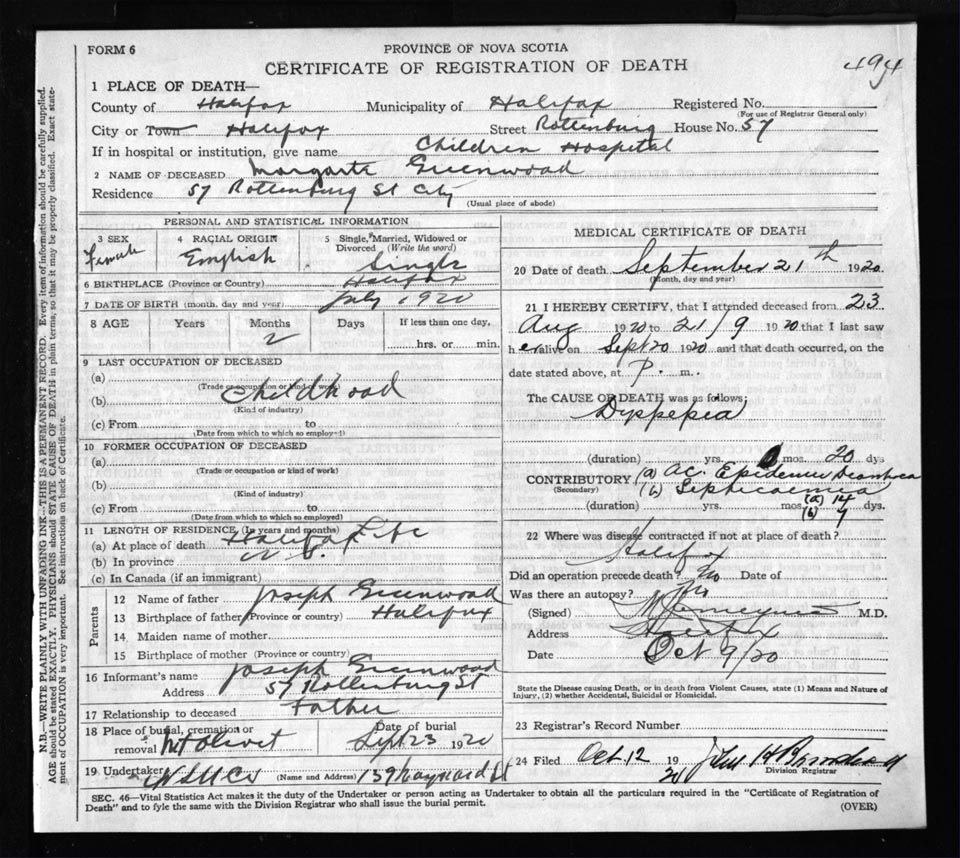 FORM 6
PROVINCE OF NOVA SCOTIA
CERTIFICATE OF REGISTRATION OF DEATH
494
1 PLACE OF DEATH—
County of Halifax Municipality of Halifax Registered No.
(For use of Registrar General only)
City or Town Halifax Street Rottenburg House No. 57
If in hospital or institution, give name Children Hospital
2 NAME OF DECEASED Margarte Greenwood
Residence 57 Rottenburg St City
(Usual place of abode)
PERSONAL AND STATISTICAL INFORMATION
3 SEX 4 RACIAL ORIGIN 5 Single, Married, Widowed or
Divorced (Write the word)
Female English Single
6 BIRTHPLACE (Province or Country) Halifax
7 DATE OF BIRTH (month, day and year) July 1920
8 AGE Years Months Days If less than one day,
2 hrs. or min.
9 LAST OCCUPATION OF DECEASED
(a)
(Trade or occupation or kind of work)
(b) Childhood
(Kind of industry)
(c) From to
(Date from which to which so employed)
10 FORMER OCCUPATION OF DECEASED
(a)
(Trade or occupation or kind of work)
(b)
(Kind of industry)
(c) From to
(Date from which to which so employed)
11 LENGTH OF RESIDENCE (In years and months)
(a) At place of death Halifax Life
(b) In province
(c) In Canada (if an immigrant)
Parents
12 Name of father Joseph Greenwood
13 Birthplace of father (Province or country) Halifax
14 Maiden name of mother
15 Birthplace of mother (Province or country)
16 Informant's name Joseph Greenwood
Address 57 Rottenburg St
17 Relationship to deceased Father
18 Place of burial, cremation or Date of burial
removal Mt Olivet Sept 23 1920
19 Undertaker (Name and Address) 139 Maynard St
MEDICAL CERTIFICATE OF DEATH
20 Date of death September 21th 1920
(Month, day and year)
21 I HEREBY CERTIFY, that I attended deceased from 23
Aug 1920 to 21/9 1920 that I last saw
h er alive on Sept 20 1920 and that death occurred, on the
date stated above, at P. m.
The CAUSE OF DEATH was as follows:
Dyspepia
(duration) yrs. mos. 20 dys
CONTRIBUTORY (a) Ac. Epidemic Diarrhoea
(Secondary) (b) Septicaemia
(duration) yrs. mos. (a) 14 dys.
(b) 7
22 Where was disease contracted if not at place of death?
Halifax
Did an operation precede death? No Date of
Was there an autopsy? No
(Signed) M.D.
Address Halifax
Date Oct 9/20
State the Disease causing Death, or in death from Violent Causes, state (1) Means and Nature of
Injury, (2) whether Accidental, Suicidal or Homicidal.
23 Registrar's Record Number
24 Filed Oct. 12 1920
Division Registrar
SEC. 46—Vital Statistics Act makes it the duty of the Undertaker or person acting as Undertaker to obtain all the particulars required in the "Certificate of Registration of
Death" and to fyle the same with the Division Registrar who shall issue the burial permit.
(OVER)
N.B.—WRITE PLAINLY WITH UNFADING INK—THIS IS A PERMANENT RECORD. Every item of information should be carefully supplied.
AGE should be stated EXACTLY. PHYSICIANS should STATE CAUSE OF DEATH in plain terms, so that it may be properly classified. Exact state-
ment of OCCUPATION is very important. See instructions on back of Certificate.